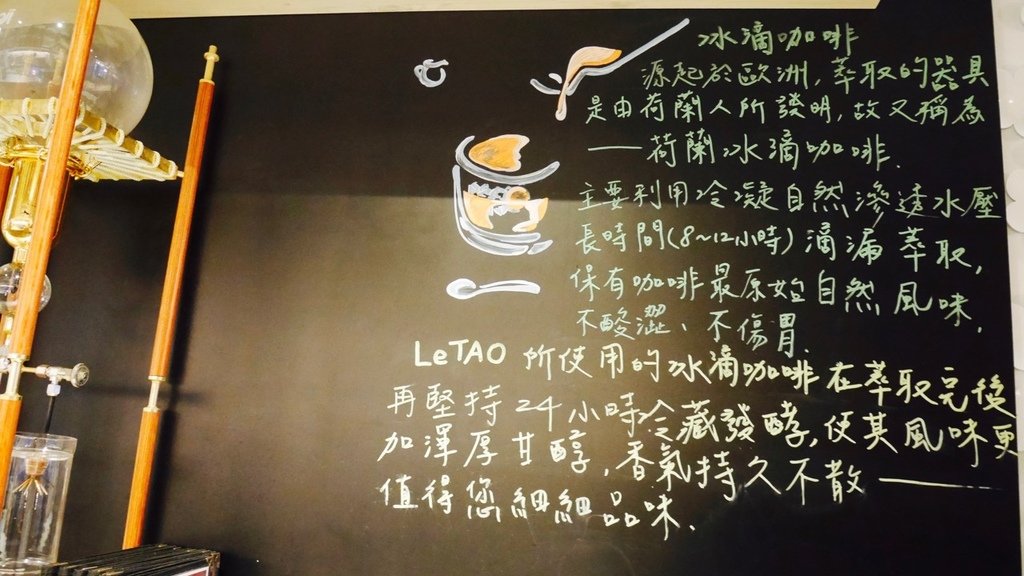 冰滴咖啡
源起於歐洲,萃取的器具
是由荷蘭人所發明,故又稱為
——荷蘭冰滴咖啡.
主要利用冷凝自然滲透水壓
長時間(8~12小時)滴漏萃取,
保有咖啡最原始自然風味,
不酸澀、不傷胃.
LeTAO 所使用的冰滴咖啡在萃取完後
再堅持24小時冷藏發酵,使其風味更
加渾厚甘醇,香氣持久不散——
值得您細細品味.